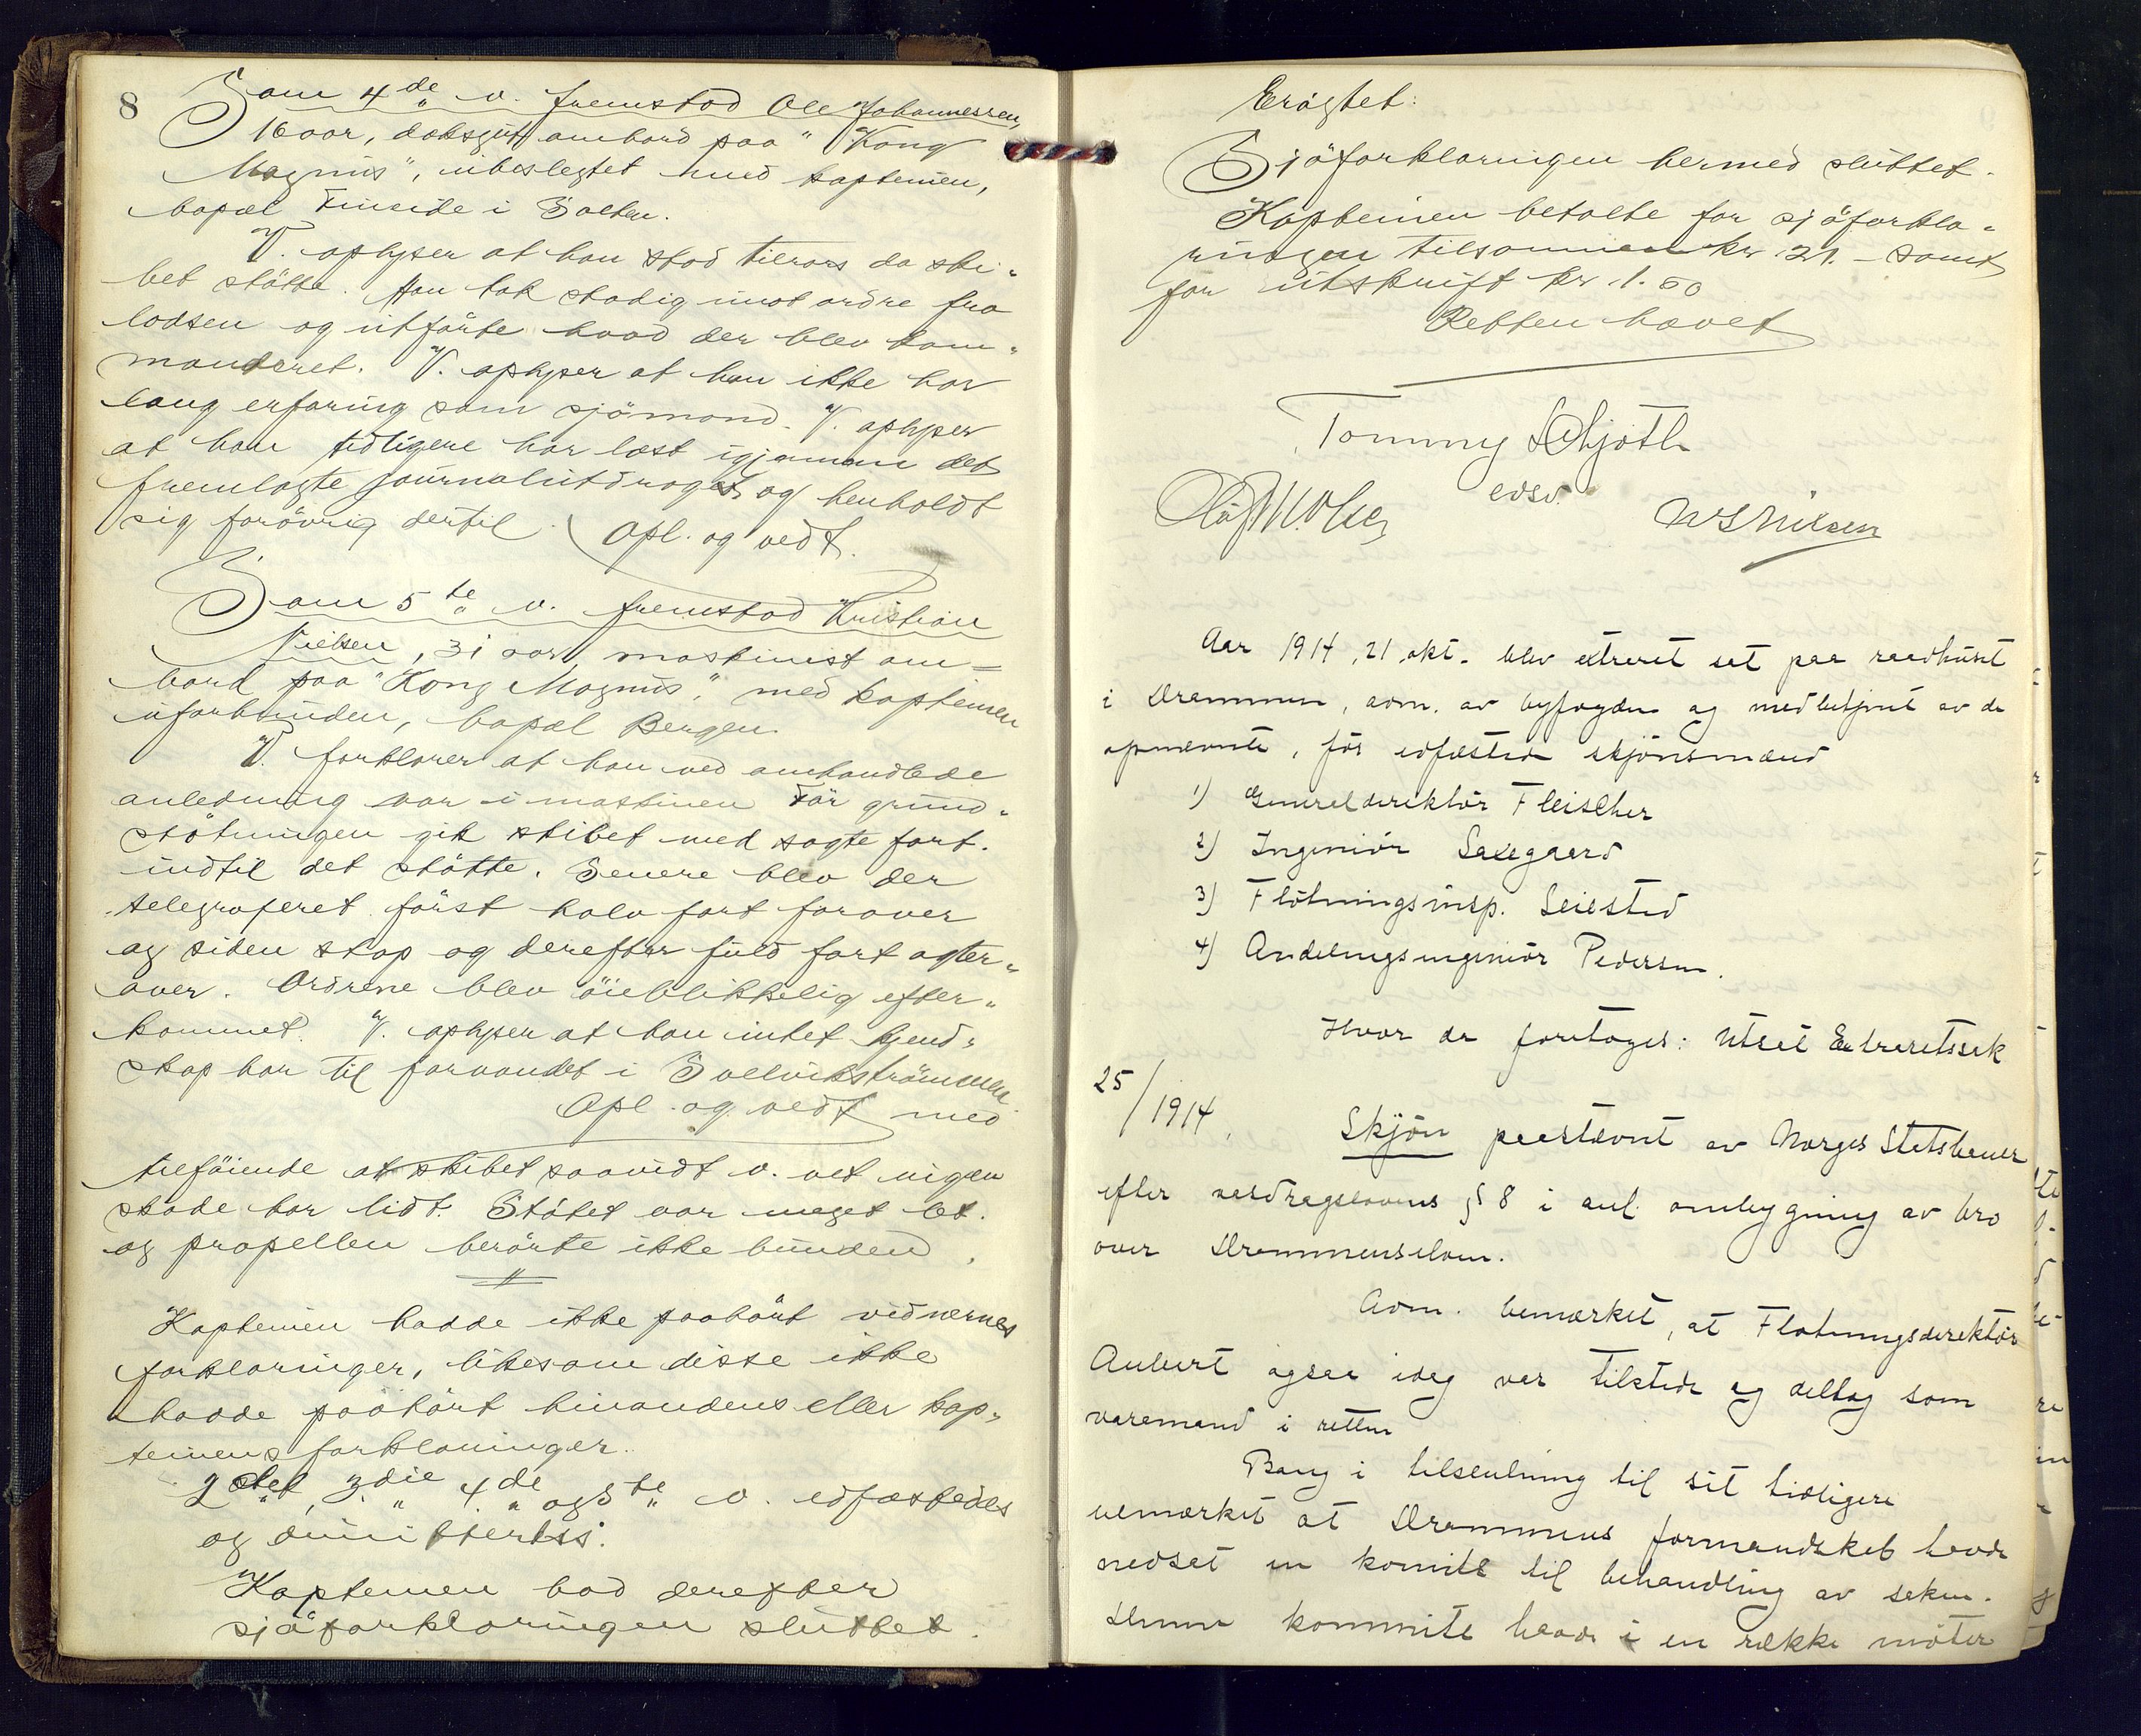 8
Som 4de v. fremstod Ole Johannessen,
16 aar, dæksgut ombord paa "Kong
Magnus", ubeslegtet med kapteinen,
bopæl i Salten.
V. oplyser at han stod tilrors da ski-
bet støtte. Han tok stadig imot ordre fra
lodsen og utførte hvad der blev kom-
manderet. V. oplyser at han ikke har
lang erfaring som sjömand. V. oplyser
at han tidligere har læst igjennem det
fremlagte journalutdrag og henholdt
sig forövrig dertil. Opl. og vedt.
Som 5te v. fremstod Kristian
Nielsen, 31 aar, maskinist om-
bord paa "Kong Magnus", med kapteinen
uforbunden, bopæl Bergen.
V. forklarer at han ved omhandlede
anledning var i maskinen. Før grund-
stötningen gik skibet med sagte fart.
indtil det stötte. Senere blev der
telegraferet först halv fart forover
og siden stop og derefter fuld fart agter-
over. Ordrene blev öieblikkelig efter-
kommet. V. oplyser at han intet kjend-
skap har til farvandet i Svelvikströmmen.
Opl. og vedt. med
tilföiende at skibet saavidt v. vet ingen
skade har lidt. Stötet var meget let.
og propellen berörte ikke bunden.
Kapteinen hadde ikke paahört vidnernes
forklaringer, likesom disse ikke
hadde paahört hinandens eller kap-
teinens forklaringer.
2det, 3die, 4de og 5te v. edfæstedes
og
Kapteinen bad derefter
sjöforklaringen sluttet.
Eragtet:
Sjöforklaringen hermed sluttet.
Kapteinen betalte for sjöforkla-
ringen tilsammen kr 21.- samt
for utskrift kr 1.50
Retten hævet
Tommy Schjöth
edsv.
Olaf M. Olsen
N S Nilsen
Aar 1914, 21 okt. blev extraret sat paa raadhuset
i Drammen, adm. av byfogden og medbetjent av de
opnævnte, för edfæstede skjönsmænd
1) Generaldirektör Fleischer
2) Ingeniör Saxegaard
3) Flötningsinsp. Seiersted
4) Avdelingsingeniör Pedersen.
Hvor da foretages: Utsat Extraretssak
25/1914. Skjön paastævnt av Norges Statsbaner
efter vasdragslovens § 8 i anl. ombygning av bro
over Drammenselven.
Adm. bemærket, at Flötningsdirektör
Aubert ogsaa idag var tilstede og deltog som
varamand i retten
Bang i tilslutning til sit tidligere
bemærket at Drammens formandskab havde
nedsat en komite til behandling av saken.
Denne kommite havde i en række möter